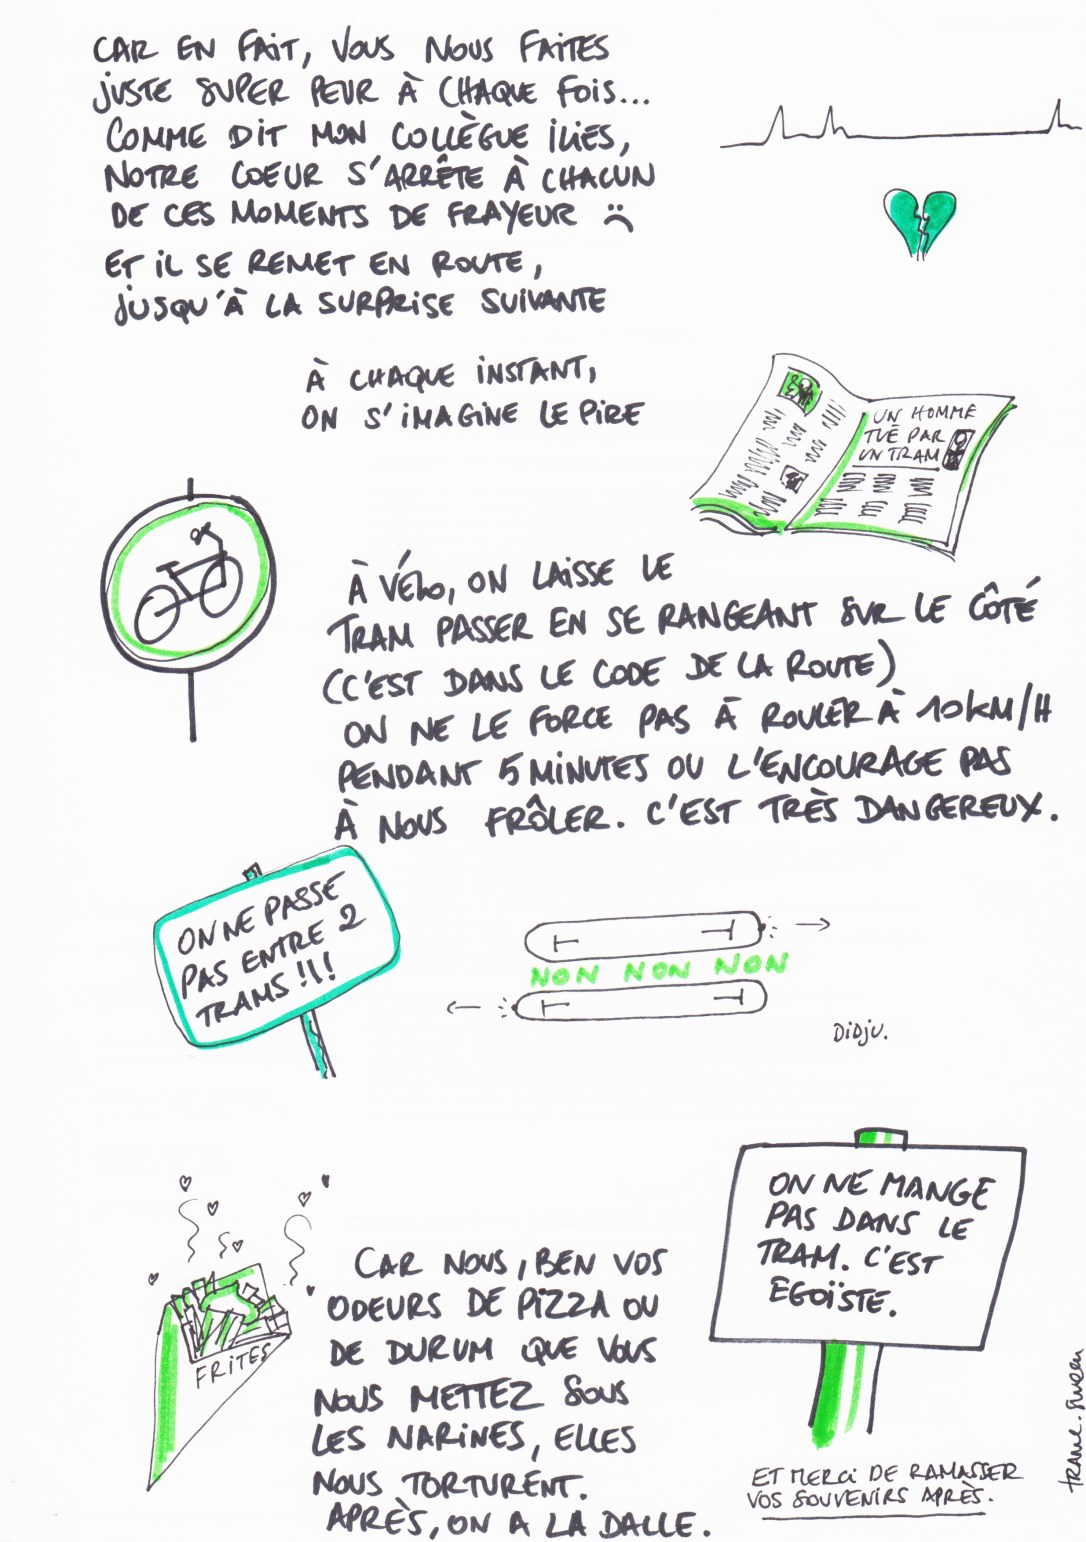 CAR EN FAIT, VOUS NOUS FAITES
JUSTE SUPER PEUR À CHAQUE FOIS...
COMME DIT MON COLLÈGUE ILIES,
NOTRE COEUR S'ARRÊTE À CHACUN
DE CES MOMENTS DE FRAYEUR :(
ET IL SE REMET EN ROUTE,
JUSQU'À LA SURPRISE SUIVANTE
À CHAQUE INSTANT,
ON S'IMAGINE LE PIRE
UN HOMME
TUÉ PAR
UN TRAM
À VÉLO, ON LAISSE LE
TRAM PASSER EN SE RANGEANT SUR LE CÔTÉ
(C'EST DANS LE CODE DE LA ROUTE)
ON NE LE FORCE PAS À ROULER À 10KM/H
PENDANT 5 MINUTES OU L'ENCOURAGE PAS
À NOUS FRÔLER. C'EST TRÈS DANGEREUX.
ON NE PASSE
PAS ENTRE 2
TRAMS !!!
NON NON NON
DIDJU.
FRITES
CAR NOUS, BEN VOS
ODEURS DE PIZZA OU
DE DURUM QUE VOUS
NOUS METTEZ SOUS
LES NARINES, ELLES
NOUS TORTURENT.
APRÈS, ON A LA DALLE.
ON NE MANGE
PAS DANS LE
TRAM. C'EST
EGOÏSTE.
ET MERCI DE RAMASSER
VOS SOUVENIRS APRÈS.